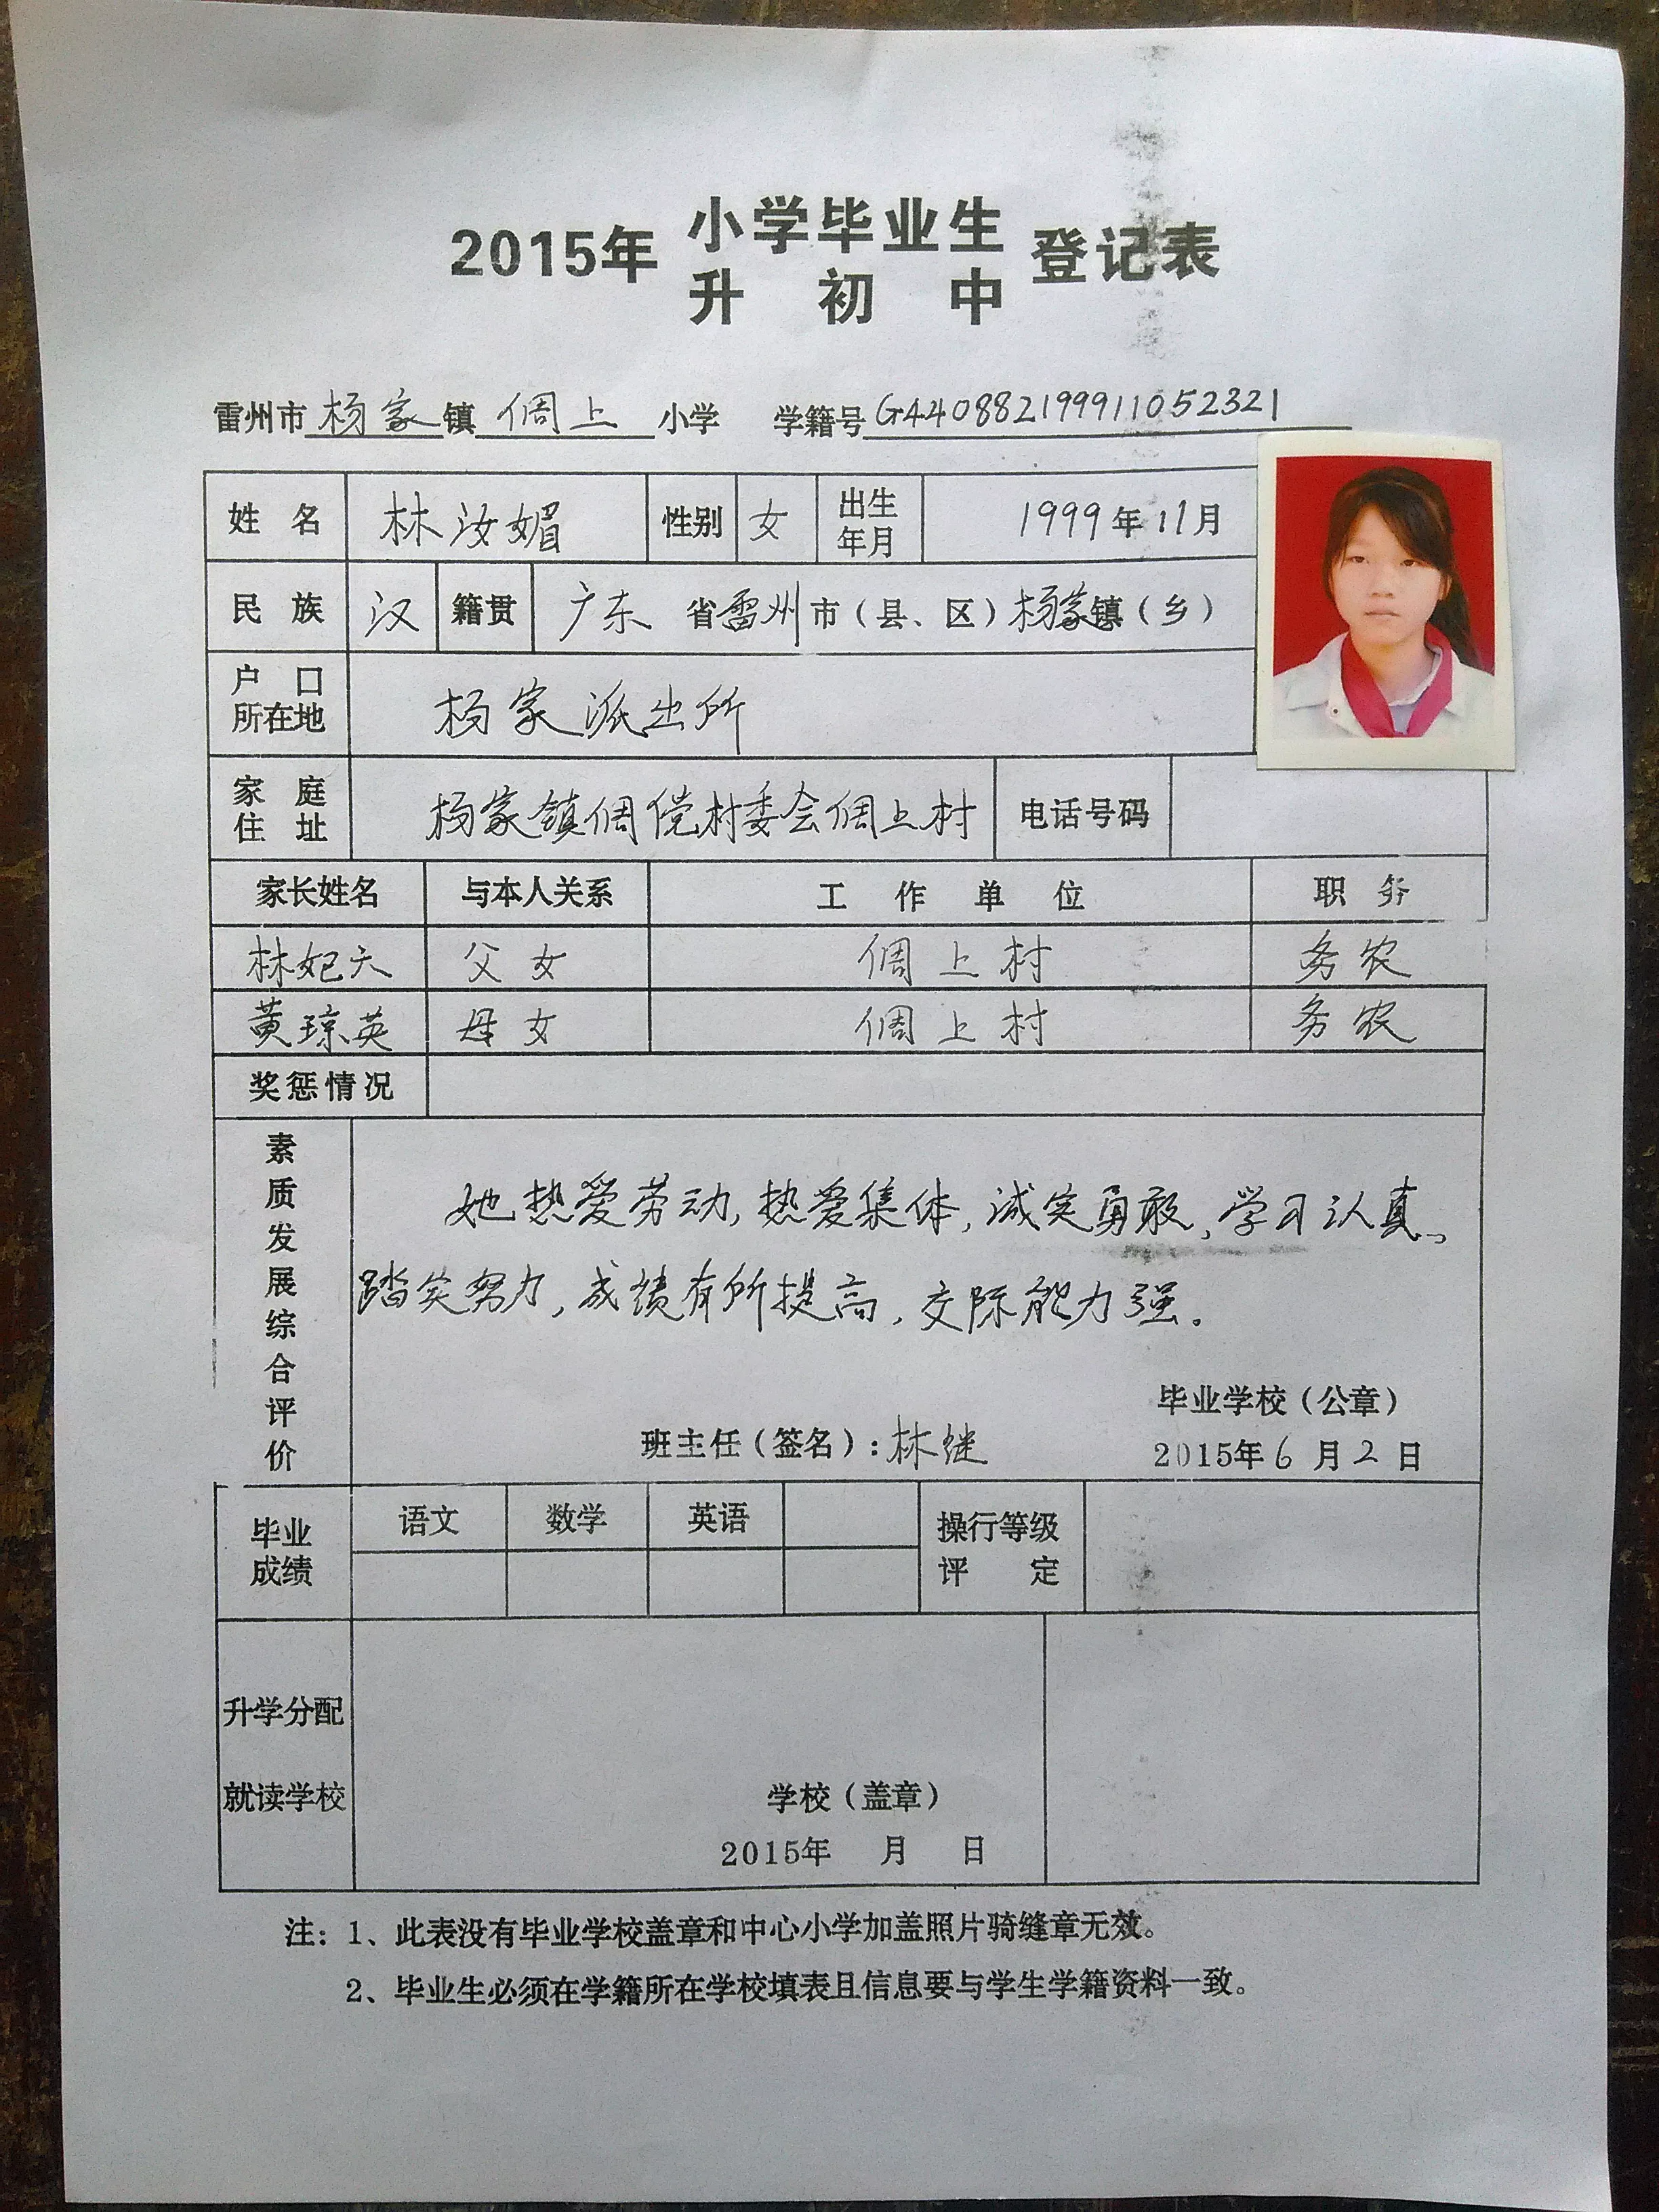 2015年 小学毕业生 登记表
升初中
雷州市 杨家 镇 倜上 小学 学籍号 G440882199911052321
姓名 林汝媚 性别 女 出生年月 1999年11月
民族 汉 籍贯 广东 省 雷州 市（县、区）杨家镇（乡）
户口所在地 杨家派出所
家庭住址 杨家镇倜傥村委会倜上村 电话号码
家长姓名 与本人关系 工作单位 职务
林妃六 父女 倜上村 务农
黄琼英 母女 倜上村 务农
奖惩情况
素质发展综合评价
她热爱劳动,热爱集体,诚实勇敢,学习认真、
踏实努力,成绩有所提高,交际能力强。
毕业学校（公章）
班主任（签名）：林继 2015年6月2日
毕业成绩 语文 数学 英语 操行等级评定
升学分配
就读学校 学校（盖章）
2015年 月 日
注：1、此表没有毕业学校盖章和中心小学加盖照片骑缝章无效。
2、毕业生必须在学籍所在学校填表且信息要与学生学籍资料一致。